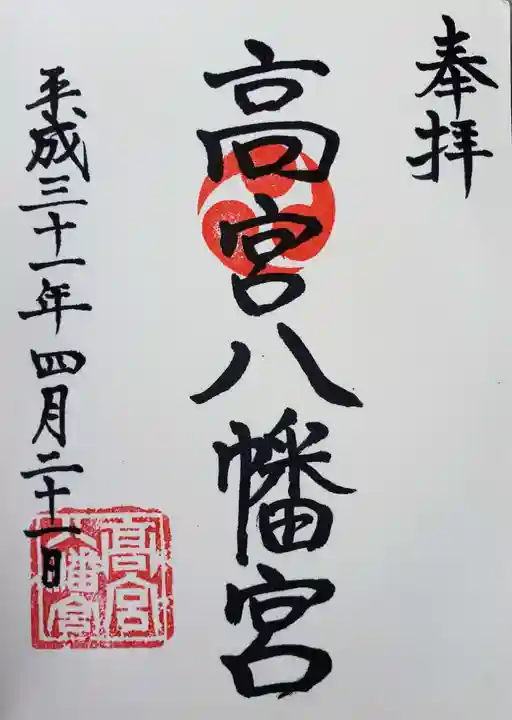 奉拝
高宮八幡宮
平成三十一年四月二十一日
高宮
八幡宮